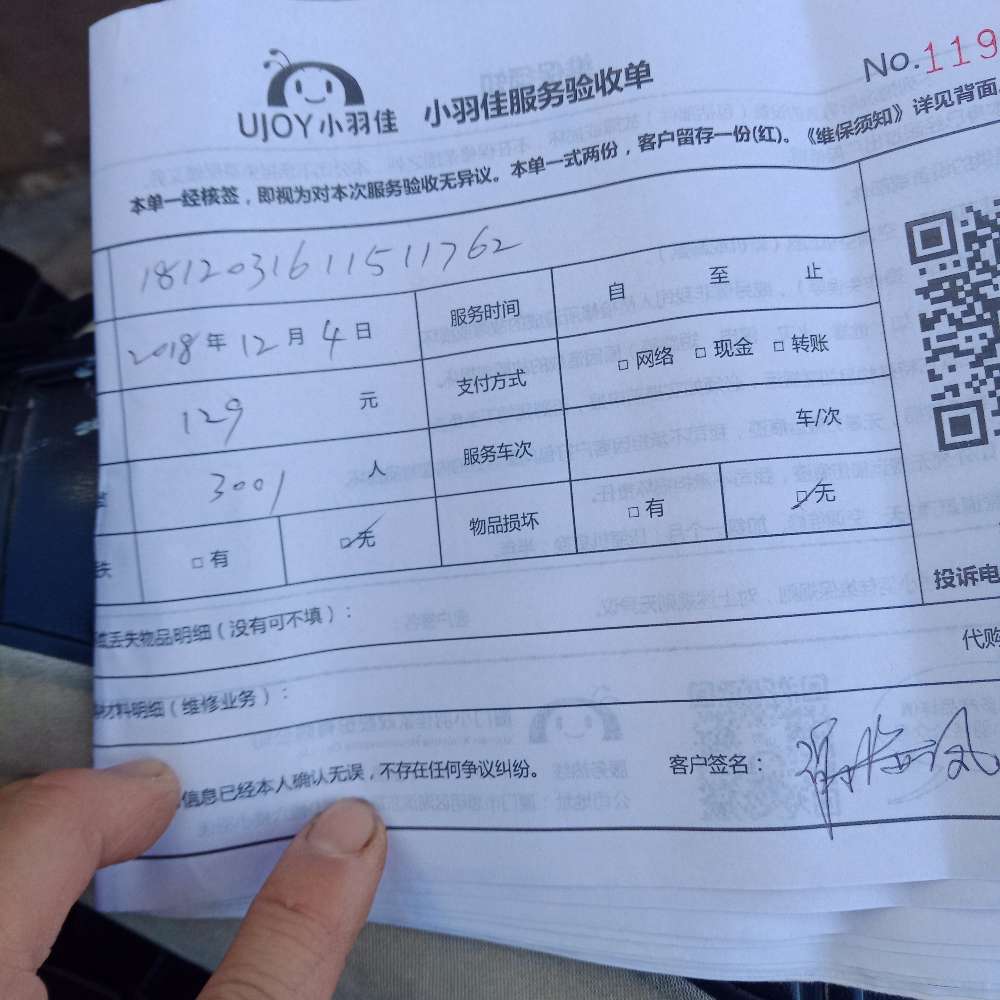 UJOY小羽佳 小羽佳服务验收单 No.119
本单一经核签，即视为对本次服务验收无异议。本单一式两份，客户留存一份(红)。《维保须知》详见背面。
1812031611511762
2018年12月4日 服务时间 自 至 止
129 元 支付方式 □网络 □现金 □转账
3001 人 服务车次 车/次
失 □有 □无 物品损坏 □有 □无
投诉电
或丢失物品明细（没有可不填）：
代购
材料明细（维修业务）：
信息已经本人确认无误，不存在任何争议纠纷。 客户签名：